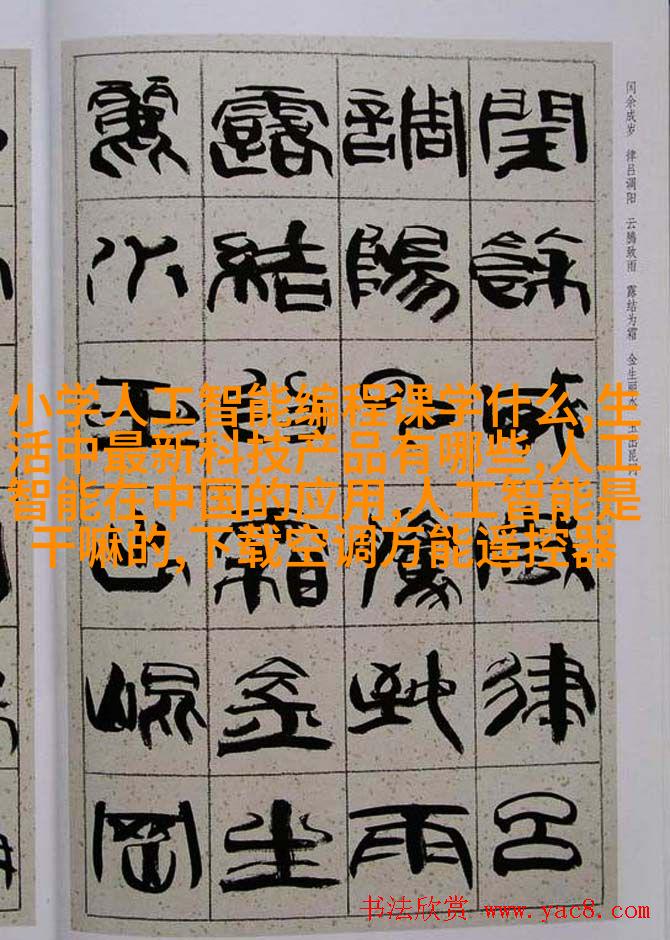 闰余成岁 律吕调阳 云腾致雨 露结为霜 金生丽水 玉出昆冈
閏餘成歲律呂
調陽雲騰致雨
露結為霜金生
麗水玉出崐岡
小学人工智能编程课学什么,生
活中最新科技产品有哪些,人工
智能在中国的应用,人工智能是
干嘛的,下载空调万能遥控器
书法欣赏 www.yac8.com